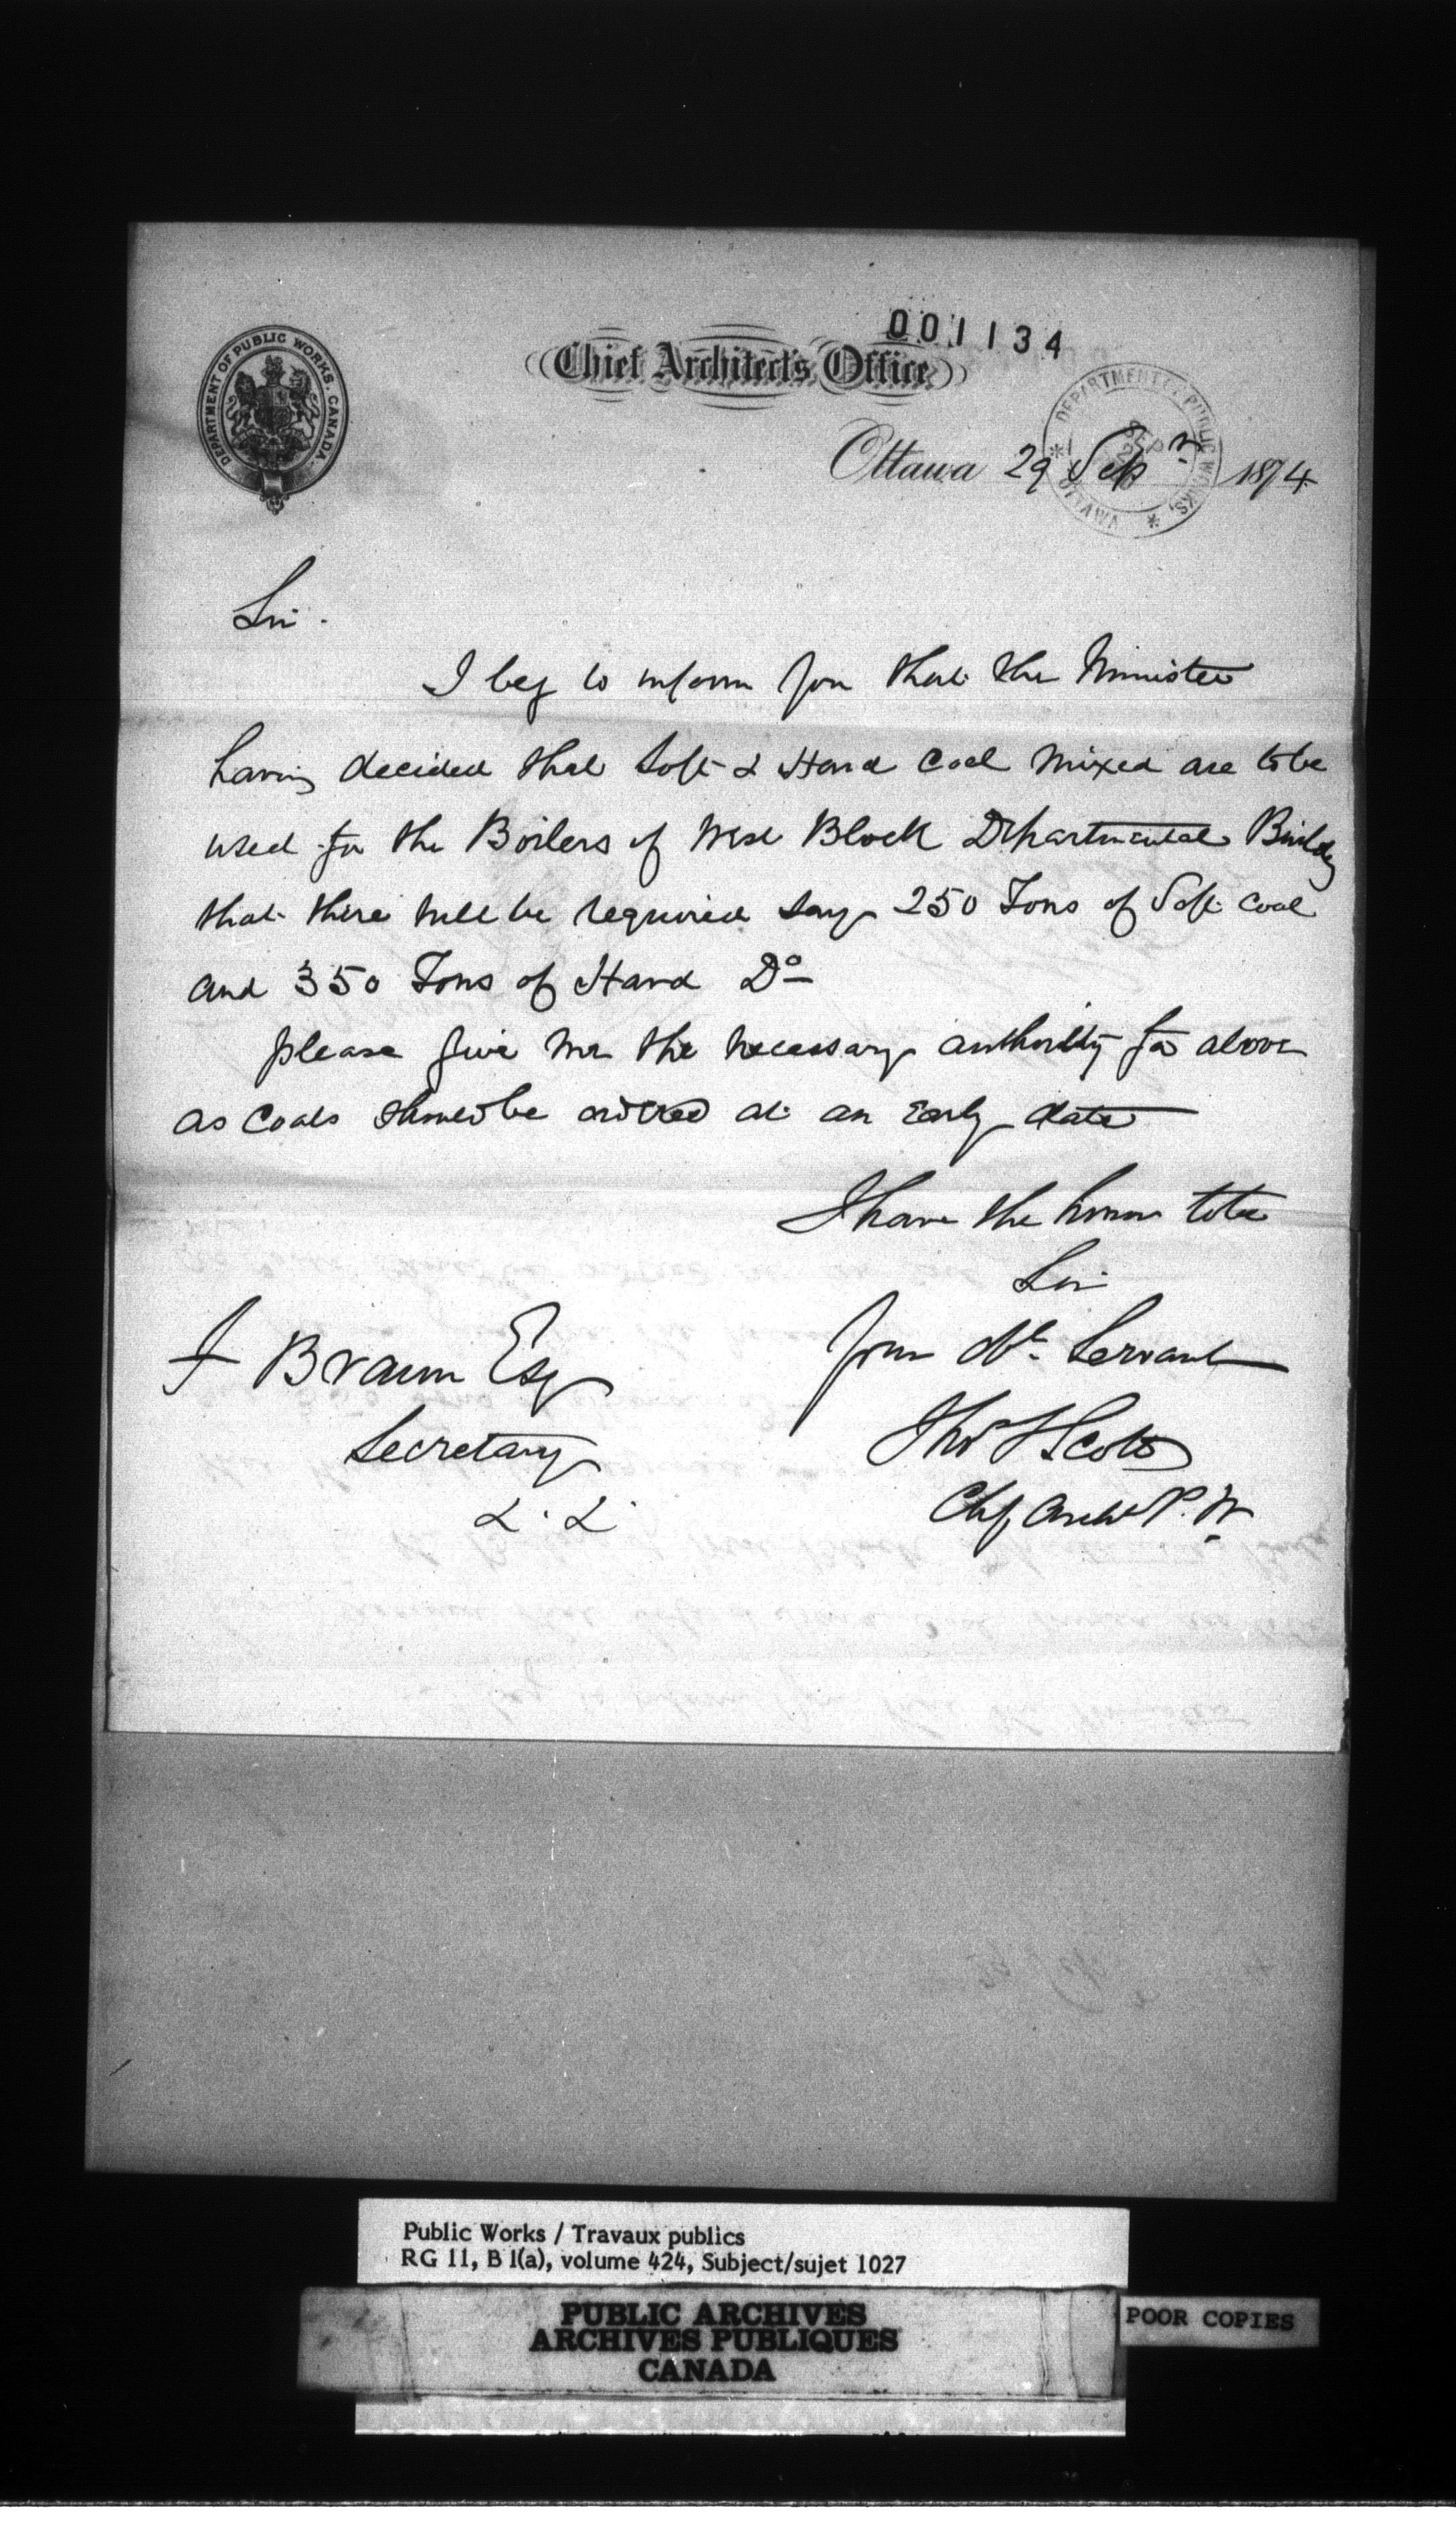 001134
DEPARTMENT OF PUBLIC WORKS, CANADA
Chief Architect's Office
DEPARTMENT OF PUBLIC WORKS, OTTAWA
SEP
Ottawa 29 Sepr 1874
Sir.
I beg to inform you that the Minister
having decided that Soft & Hard Coal mixed are to be
used for the Boilers of West Block Departmental Buildg
that there will be required say 250 Tons of Soft Coal
and 350 Tons of Hard Do
please give me the necessary authority for above
as Coals should be ordered at an Early date
I have the honor to be
Sir
Your Ob. Servant
Thos S Scott
Chf Archt P. W
F Braun Esq
Secretary
&. &.
Public Works / Travaux publics
RG 11, B 1(a), volume 424, Subject/sujet 1027
PUBLIC ARCHIVES
ARCHIVES PUBLIQUES
CANADA
POOR COPIES